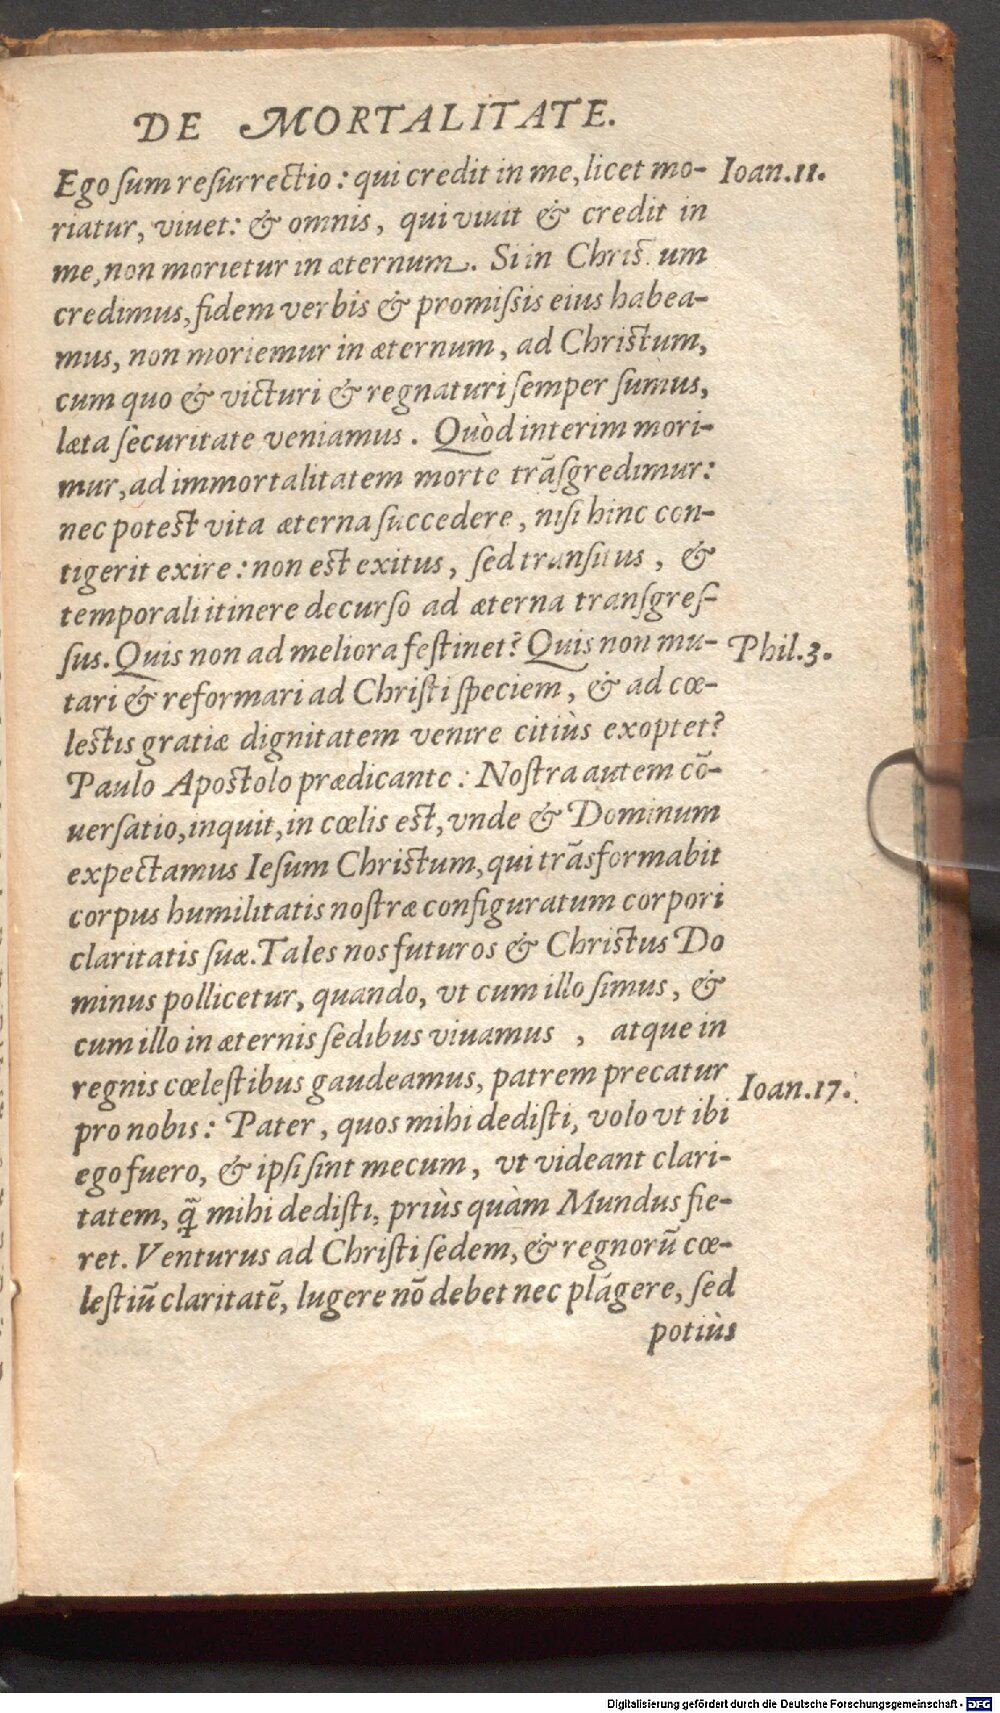 DE MORTALITATE.
Ego ſum reſurrectio: qui credit in me, licet mo- Ioan.11.
riatur, viuet: & omnis, qui viuit & credit in
me, non morietur in æternum. Si in Chriſtum
credimus, fidem verbis & promiſsis eius habea-
mus, non moriemur in æternum, ad Chriſtum,
cum quo & victuri & regnaturi ſemper ſumus,
læta ſecuritate veniamus. Quòd interim mori-
mur, ad immortalitatem morte trãſgredimur:
nec poteſt vita æterna ſuccedere, niſi hinc con-
tigerit exire: non eſt exitus, ſed tranſitus, &
temporali itinere decurſo ad æterna tranſgreſ-
ſus. Quis non ad meliora feſtinet? Quis non mu- Phil.3.
tari & reformari ad Chriſti ſpeciem, & ad cœ-
leſtis gratiæ dignitatem venire citiùs exoptet?
Paulo Apoſtolo prædicante: Noſtra autem cõ-
uerſatio, inquit, in cœlis eſt, vnde & Dominum
expectamus Ieſum Chriſtum, qui trãsformabit
corpus humilitatis noſtræ configuratum corpori
claritatis ſuæ. Tales nos futuros & Chriſtus Do
minus pollicetur, quando, vt cum illo ſimus, &
cum illo in æternis ſedibus viuamus , atque in
regnis cœleſtibus gaudeamus, patrem precatur Ioan.17.
pro nobis: Pater, quos mihi dediſti, volo vt ibi
ego fuero, & ipſi ſint mecum, vt videant clari-
tatem, q̃ mihi dediſti, priùs quàm Mundus fie-
ret. Venturus ad Chriſti ſedem, & regnorũ cœ-
leſtiũ claritatẽ, lugere nõ debet nec plãgere, ſed
potiùs
Digitalisierung gefördert durch die Deutsche Forschungsgemeinschaft - DFG